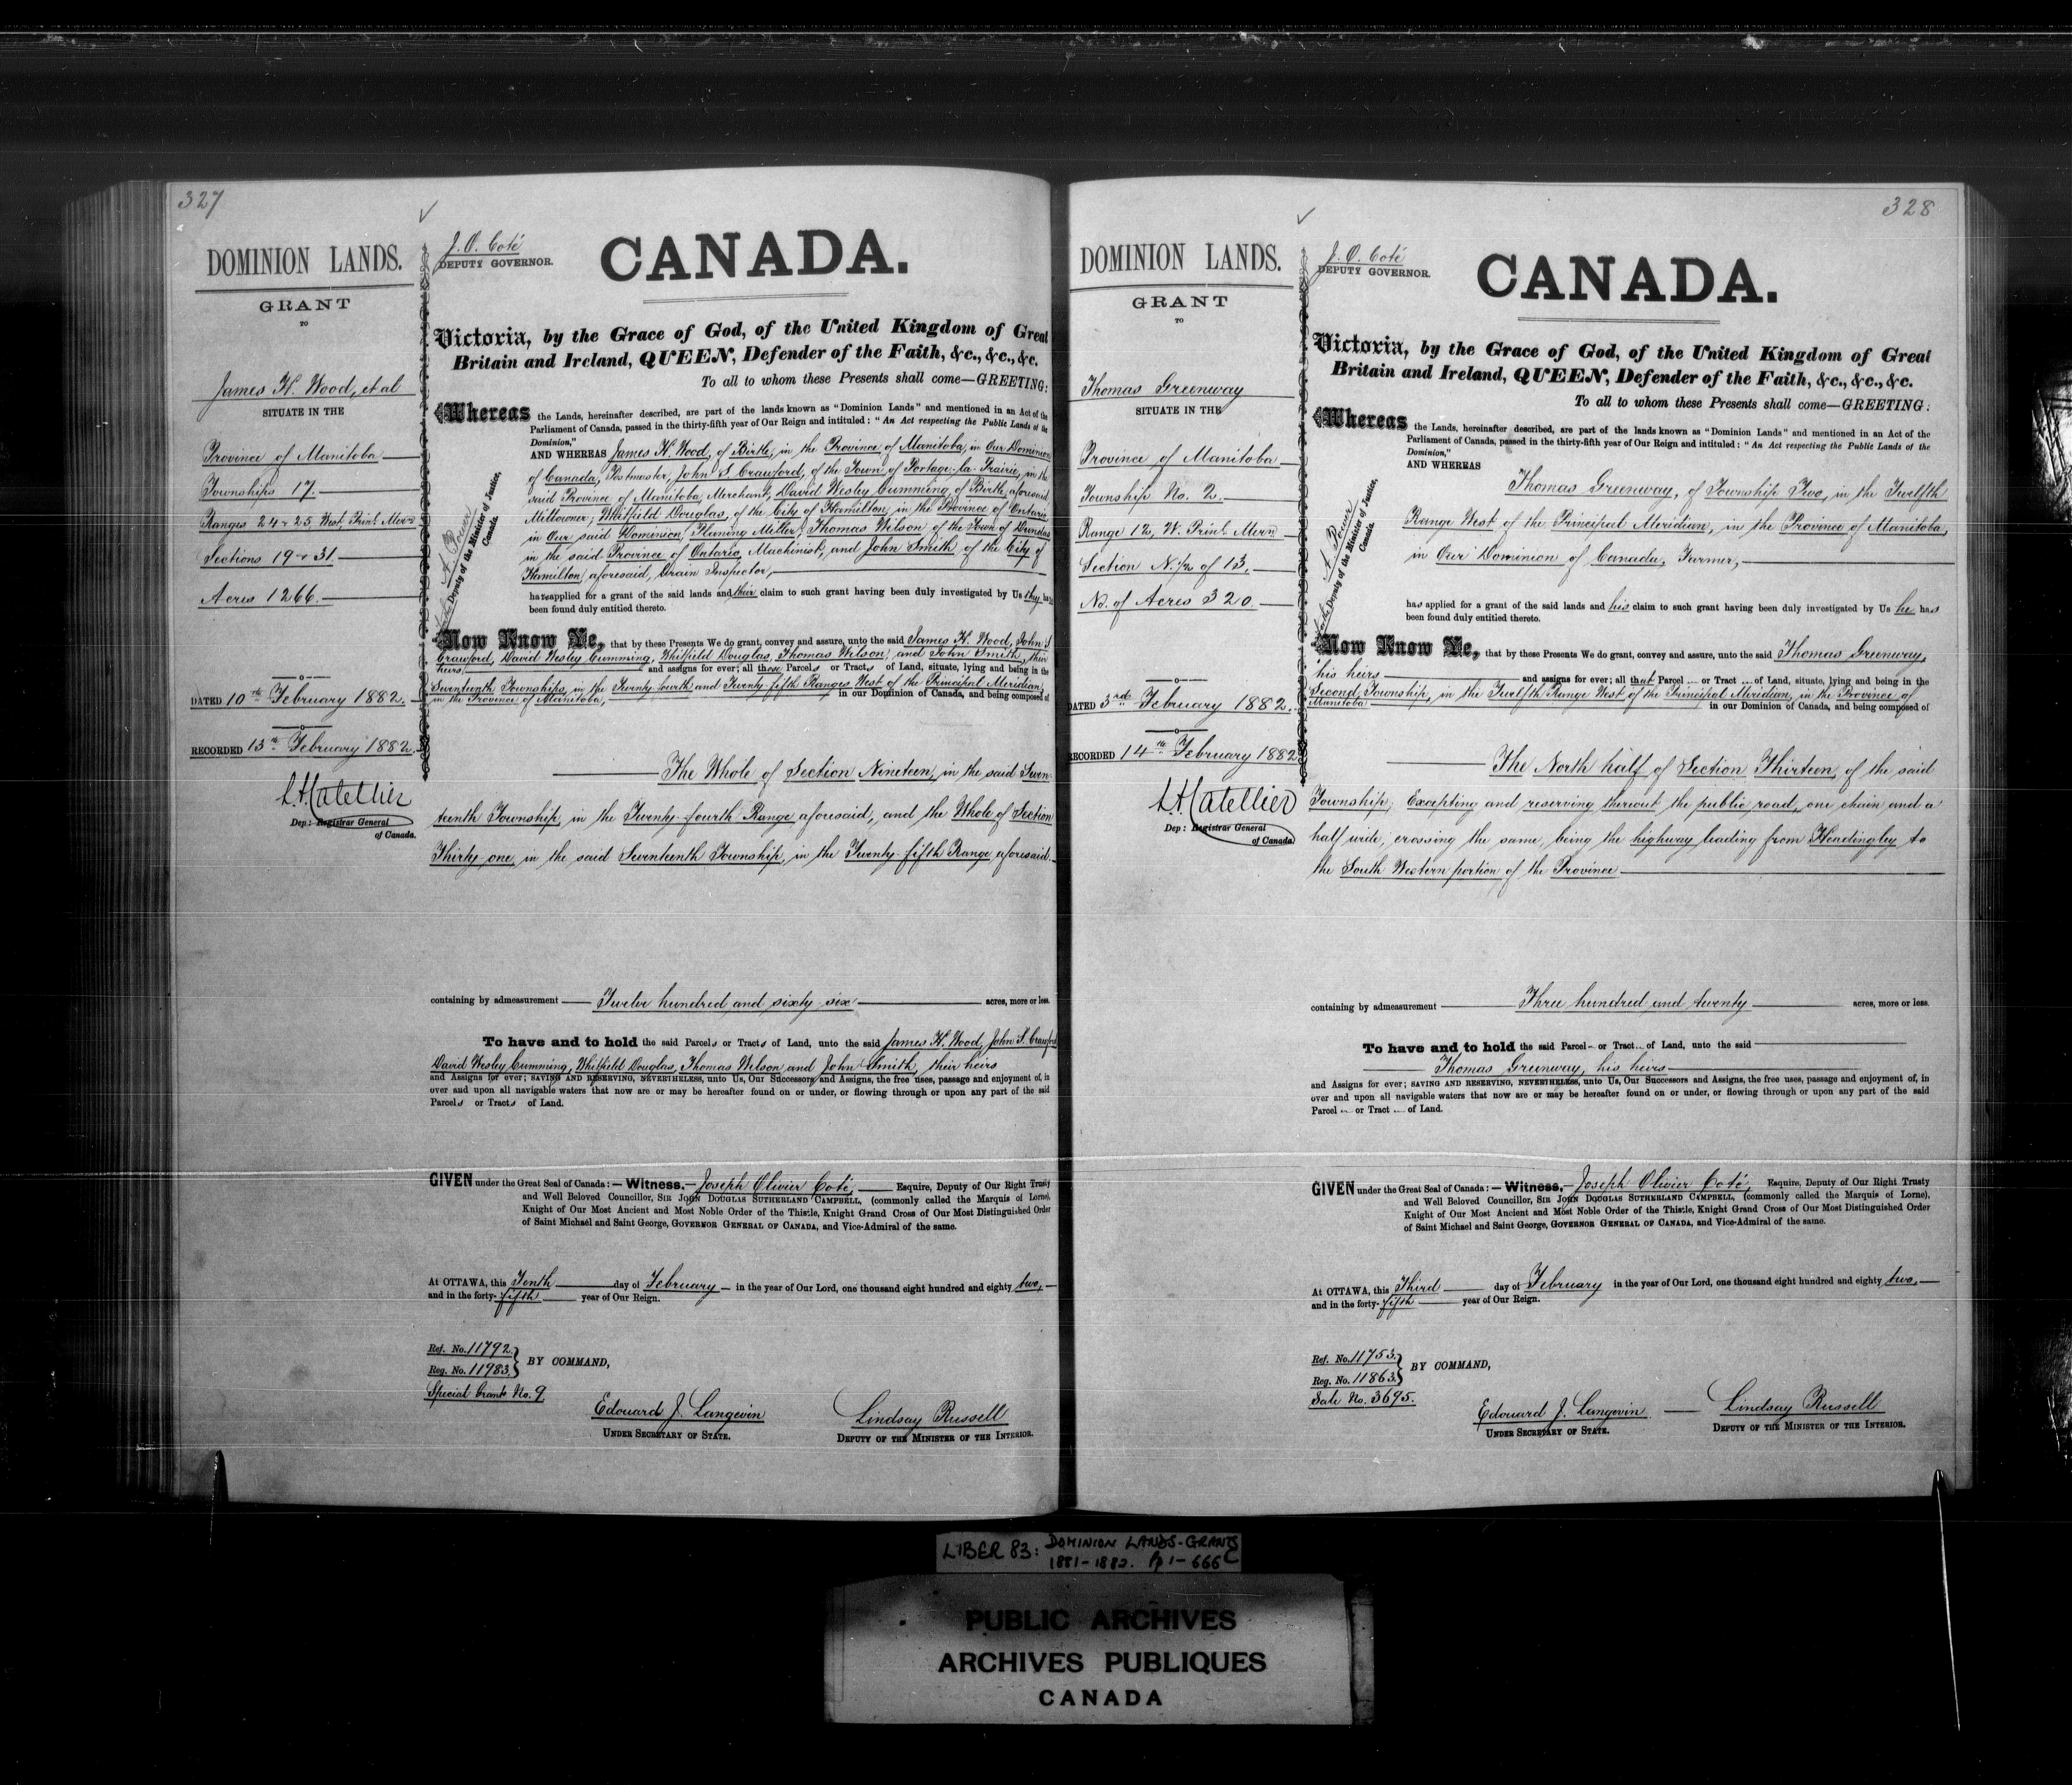 327
DOMINION LANDS.
GRANT
TO
James H. Wood, et al
SITUATE IN THE
Province of Manitoba
Townships 17.
Ranges 24 & 25 West Prinl. Mern
Sections 19 & 31
Acres 1266.
DATED 10th February 1882.
RECORDED 13th February 1882.
L.A. Catellier
Dep: Registrar General
of Canada.
J. O. Coté
DEPUTY GOVERNOR.
A. Power
Deputy of the Minister of Justice,
Canada.
CANADA.
Victoria, by the Grace of God, of the United Kingdom of Great
Britain and Ireland, QUEEN, Defender of the Faith, &c., &c., &c.
To all to whom these Presents shall come—GREETING:
Whereas the Lands, hereinafter described, are part of the lands known as "Dominion Lands" and mentioned in an Act of the
Parliament of Canada, passed in the thirty-fifth year of Our Reign and intituled: "An Act respecting the Public Lands of the
Dominion,"
AND WHEREAS James H. Wood, of Birtle, in the Province of Manitoba, in Our Dominion
of Canada, Postmaster, John S. Crawford, of the Town of Portage-la-Prairie, in the
said Province of Manitoba, Merchant, David Wesley Cumming, of Birtle, aforesaid
Millowner, Whitfield Douglas, of the City of Hamilton, in the Province of Ontario
in Our said Dominion, Pluming Miller, Thomas Wilson of the Town of Dundas
in the said Province of Ontario, Machinist, and John Smith of the City of
Hamilton, aforesaid, Grain Inspector,
have applied for a grant of the said lands and their claim to such grant having been duly investigated by Us they have
been found duly entitled thereto.
Now Know Ye, that by these Presents We do grant, convey and assure, unto the said James H. Wood, John S
Crawford, David Wesley Cumming, Whitfield Douglas, Thomas Wilson, and John Smith, their
heirs and assigns for ever; all those Parcels or Tracts of Land, situate, lying and being in the
Seventeenth Townships, in the Twenty-fourth and Twenty-fifth Ranges West of the Principal Meridian,
in the Province of Manitoba, in our Dominion of Canada, and being composed of
The Whole of Section Nineteen, in the said Seven-
teenth Township, in the Twenty-fourth Range aforesaid, and the Whole of Section
Thirty one, in the said Seventeenth Township, in the Twenty-fifth Range, aforesaid.
containing by admeasurement Twelve hundred and sixty six acres, more or less.
To have and to hold the said Parcels or Tracts of Land, unto the said James H. Wood, John S. Crawford
David Wesley Cumming, Whitfield Douglas, Thomas Wilson and John Smith, their heirs
and Assigns for ever; SAVING AND RESERVING, NEVERTHELESS, unto Us, Our Successors and Assigns, the free uses, passage and enjoyment of, in
over and upon all navigable waters that now are or may be hereafter found on or under, or flowing through or upon any part of the said
Parcels or Tracts of Land.
GIVEN under the Great Seal of Canada:—Witness,—Joseph Olivier Coté, Esquire, Deputy of Our Right Trusty
and Well Beloved Councillor, SIR JOHN DOUGLAS SUTHERLAND CAMPBELL, (commonly called the Marquis of Lorne),
Knight of Our Most Ancient and Most Noble Order of the Thistle, Knight Grand Cross of Our Most Distinguished Order
of Saint Michael and Saint George, GOVERNOR GENERAL OF CANADA, and Vice-Admiral of the same.
At OTTAWA, this Tenth day of February in the year of Our Lord, one thousand eight hundred and eighty two,
and in the forty-fifth year of Our Reign.
Ref. No. 11792.
Reg. No. 11983.
BY COMMAND,
Special Grant No. 9
Edouard J. Langevin
UNDER SECRETARY OF STATE.
Lindsay Russell
DEPUTY OF THE MINISTER OF THE INTERIOR.
328
DOMINION LANDS.
GRANT
TO
Thomas Greenway
SITUATE IN THE
Province of Manitoba
Township No. 2.
Range 12, W. Prinl. Mern
Section N. ½ of 13.
No. of Acres 320.
DATED 3rd February 1882.
RECORDED 14th February 1882
L.A. Catellier
Dep: Registrar General
of Canada.
J. O. Coté
DEPUTY GOVERNOR.
A. Power
Deputy of the Minister of Justice,
Canada.
CANADA.
Victoria, by the Grace of God, of the United Kingdom of Great
Britain and Ireland, QUEEN, Defender of the Faith, &c., &c., &c.
To all to whom these Presents shall come—GREETING:
Whereas the Lands, hereinafter described, are part of the lands known as "Dominion Lands" and mentioned in an Act of the
Parliament of Canada, passed in the thirty-fifth year of Our Reign and intituled: "An Act respecting the Public Lands of the
Dominion,"
AND WHEREAS
Thomas Greenway, of Township Two, in the Twelfth
Range West of the Principal Meridian, in the Province of Manitoba,
in Our Dominion of Canada, Farmer,
has applied for a grant of the said lands and his claim to such grant having been duly investigated by Us he has
been found duly entitled thereto.
Now Know Ye, that by these Presents We do grant, convey and assure, unto the said Thomas Greenway,
his heirs and assigns for ever; all that Parcel or Tract of Land, situate, lying and being in the
Second Township, in the Twelfth Range West of the Principal Meridian, in the Province of
Manitoba in our Dominion of Canada, and being composed of
The North half of Section Thirteen, of the said
Township; Excepting and reserving thereout the public road, one chain and a
half wide, crossing the same, being the highway leading from Headingley to
the South Western portion of the Province
containing by admeasurement Three hundred and twenty acres, more or less.
To have and to hold the said Parcel or Tract of Land, unto the said
Thomas Greenway, his heirs
and Assigns for ever; SAVING AND RESERVING, NEVERTHELESS, unto Us, Our Successors and Assigns, the free uses, passage and enjoyment of, in
over and upon all navigable waters that now are or may be hereafter found on or under, or flowing through or upon any part of the said
Parcel or Tract of Land.
GIVEN under the Great Seal of Canada:—Witness,—Joseph Olivier Coté, Esquire, Deputy of Our Right Trusty
and Well Beloved Councillor, SIR JOHN DOUGLAS SUTHERLAND CAMPBELL, (commonly called the Marquis of Lorne),
Knight of Our Most Ancient and Most Noble Order of the Thistle, Knight Grand Cross of Our Most Distinguished Order
of Saint Michael and Saint George, GOVERNOR GENERAL OF CANADA, and Vice-Admiral of the same.
At OTTAWA, this Third day of February in the year of Our Lord, one thousand eight hundred and eighty two,
and in the forty-fifth year of Our Reign.
Ref. No. 11753.
Reg. No. 11863.
BY COMMAND,
Sale No. 3695.
Edouard J. Langevin
UNDER SECRETARY OF STATE.
Lindsay Russell
DEPUTY OF THE MINISTER OF THE INTERIOR.
LIBER 83: DOMINION LANDS-GRANTS
1881-1882. Pp 1-666
PUBLIC ARCHIVES
ARCHIVES PUBLIQUES
CANADA